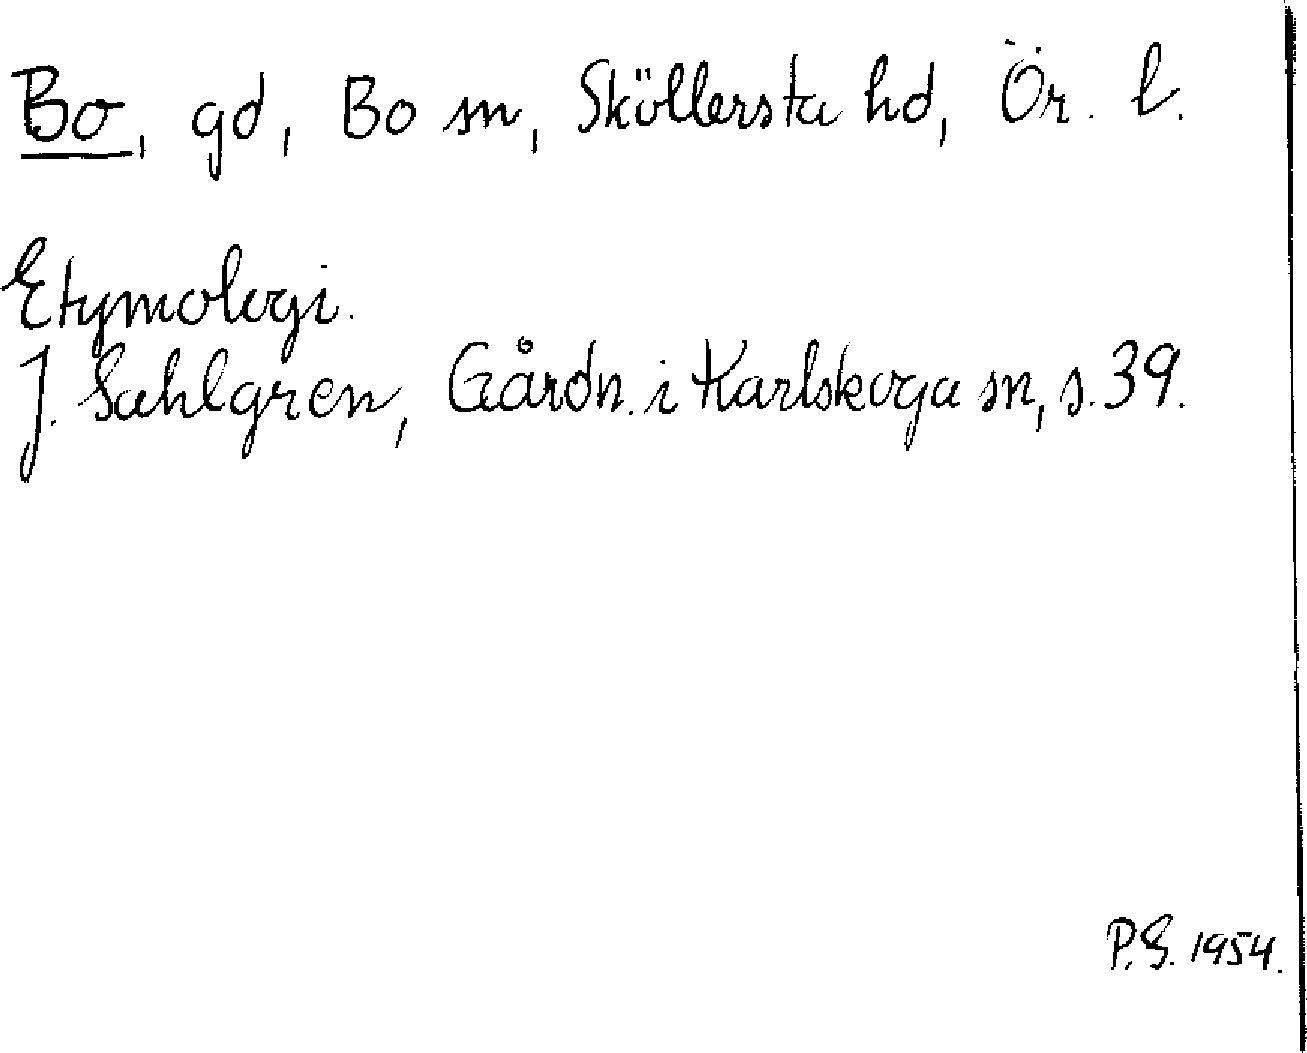 Bo, gd, Bo sn, Sköllersta hd, Ör. l.
Etymologi.
J. Sahlgren, Gårdn. i Karlskoga sn, s. 39.
P.S. 1954.